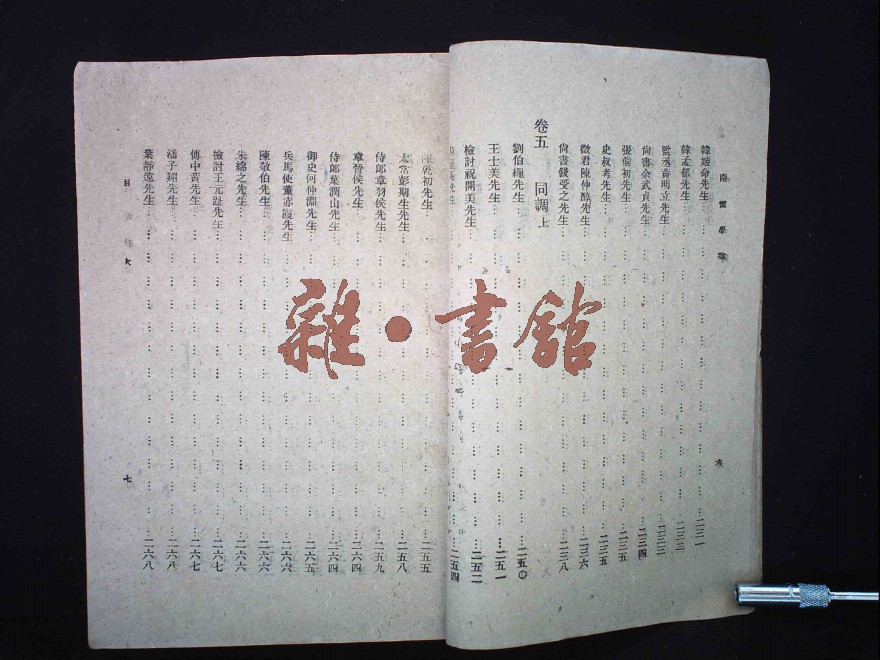 南雷學案
韓孟郁先生……二三二
尚書余武貞先生……二三四
張侗初先生……二三五
史叔考先生……二三五
徵君陳仲醇先生……二三六
尚書錢受之先生……二三八
卷五 同調上
劉伯繩先生……二五〇
王士美先生……二五一
檢討祝開美先生……二五二
先生……二五四
乾初先生……二五五
太常彭期生先生……二五八
侍郎章羽侯先生……二五九
章晉侯先生……二六四
侍郎葉潤山先生……二六四
御史何仲淵先生……二六五
兵馬使董赤霞先生……二六六
陳敬伯先生……二六六
朱綿之先生……二六六
檢討王元趾先生……二六七
傅中黃先生……二六七
潘子翔先生……二六八
葉靜遠先生……二六八
目
七
雜·書館